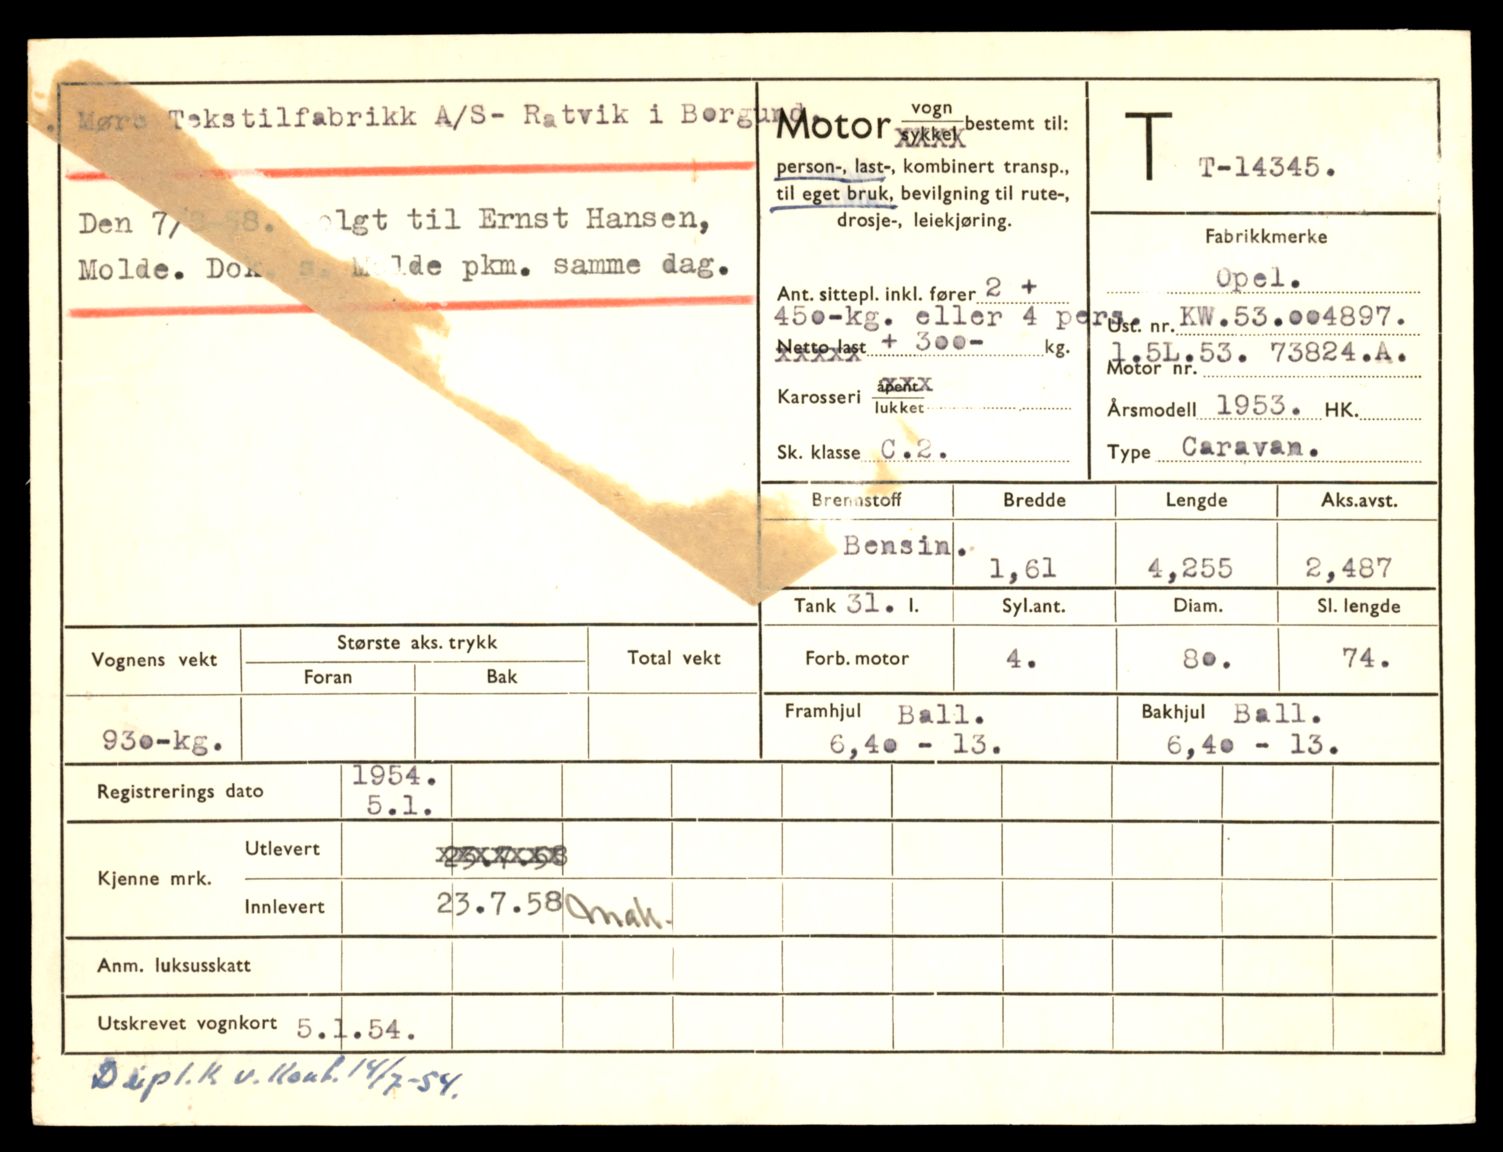 Møre Tekstilfabrikk A/S- Ratvik i Borgund.
Den 7/8-58. olgt til Ernst Hansen,
Molde. Dok. s. Molde pkm. samme dag.
Motor vogn/sykkel bestemt til:
person-, last-, kombinert transp.,
til eget bruk, bevilgning til rute-,
drosje-, leiekjøring.
Ant. sittepl. inkl. fører 2 +
450-kg. eller 4 pers.
Netto last + 300- kg.
Karosseri åpent/lukket
Sk. klasse C.2.
T T-14345.
Fabrikkmerke
Opel.
Ust. nr. KW.53.004897.
1.5L.53. 73824.A.
Motor nr.
Årsmodell 1953. HK.
Type Caravan.
Brennstoff Bredde Lengde Aks.avst.
Bensin. 1,61 4,255 2,487
Tank 31. l. Syl.ant. Diam. Sl. lengde
Forb. motor 4. 80. 74.
Framhjul Ball. Bakhjul Ball.
6,40 - 13. 6,40 - 13.
Vognens vekt Største aks. trykk Total vekt
Foran Bak
930-kg.
Registrerings dato 1954.
5.1.
Kjenne mrk.
Utlevert 23.7.58
Innlevert 23.7.58
Anm. luksusskatt
Utskrevet vognkort 5.1.54.
Dupl.k v. Kont. 14/7-54.